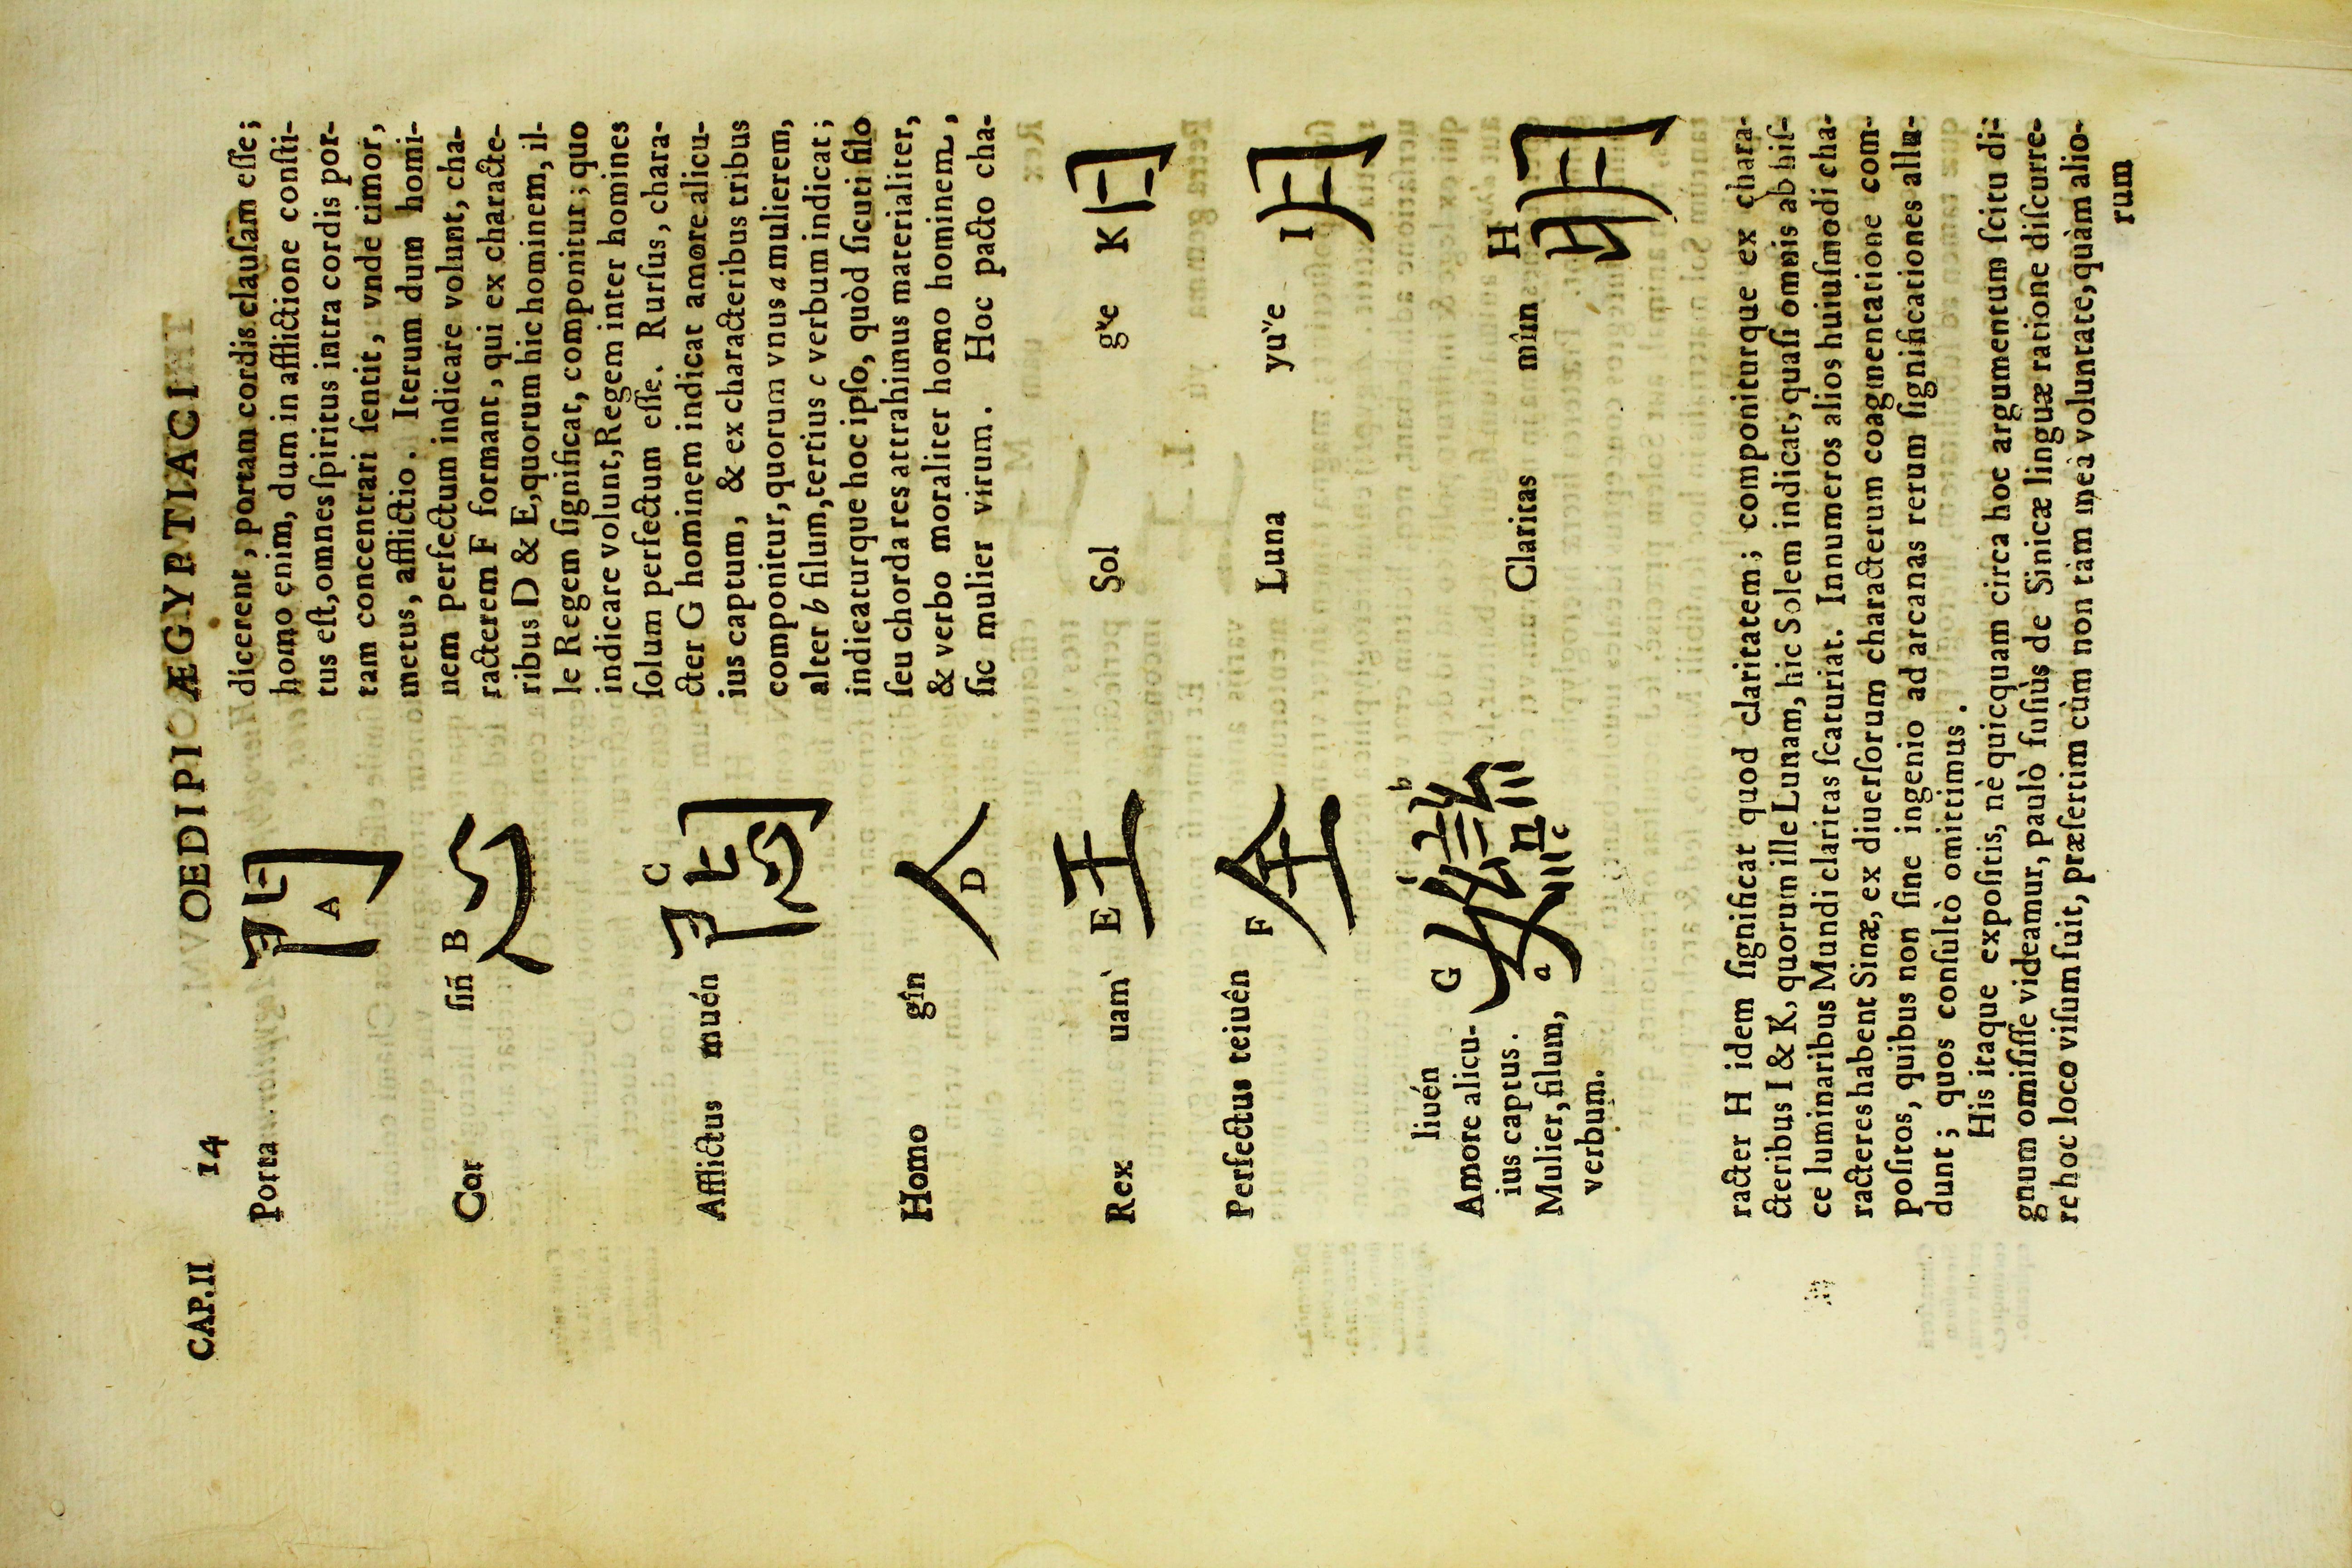 CAP. II 14 OEDIPI ÆGYPTIACI
Porta
門
A
Cor ſin̄ B
心
Afflictus muén C
悶
Homo gîn
人
D
Rex uam̀ E
王
Perfectus teiuên F
全
liuén G
Amore alicu-
ius captus.
Mulier, filum,
verbum.
戀
a b c
dicerent, portam cordis clauſam eſſe;
homo enim, dum in afflictione conſti-
tus eſt, omnes ſpiritus intra cordis por-
tam concentrari ſentit, vnde timor,
metus, afflictio. Iterum dum homi-
nem perfectum indicare volunt, cha-
racterem F formant, qui ex characte-
ribus D & E, quorum hic hominem, il-
le Regem ſignificat, componitur; quo
indicare volunt, Regem inter homines
ſolum perfectum eſſe. Rurſus, chara-
cter G hominem indicat amore alicu-
ius captum, & ex characteribus tribus
componitur, quorum vnus a mulierem,
alter b filum, tertius c verbum indicat;
indicaturque hoc ipſo, quòd ſicuti filo
ſeu chorda res attrahimus materialiter,
& verbo moraliter homo hominem,
ſic mulier virum. Hoc pacto cha-
Sol gᵛe K
日
Luna yuᵛe I
月
Claritas mîın H
明
racter H idem ſignificat quod claritatem; componiturque ex chara-
cteribus I & K, quorum ille Lunam, hic Solem indicat, quaſi omnis ab hiſ-
ce luminaribus Mundi claritas ſcaturiat. Innumeros alios huiuſmodi cha-
racteres habent Sinæ, ex diuerſorum characterum coagmentatione com-
poſitos, quibus non ſine ingenio ad arcanas rerum ſignificationes allu-
dunt; quos conſultò omittimus.
His itaque expoſitis, nè quicquam circa hoc argumentum ſcitu di-
gnum omiſiſſe videamur, paulò fuſiùs de Sinicæ linguæ ratione diſcurre-
re hoc loco viſum fuit, præſertim cùm non tàm meà voluntate, quàm alio-
rum